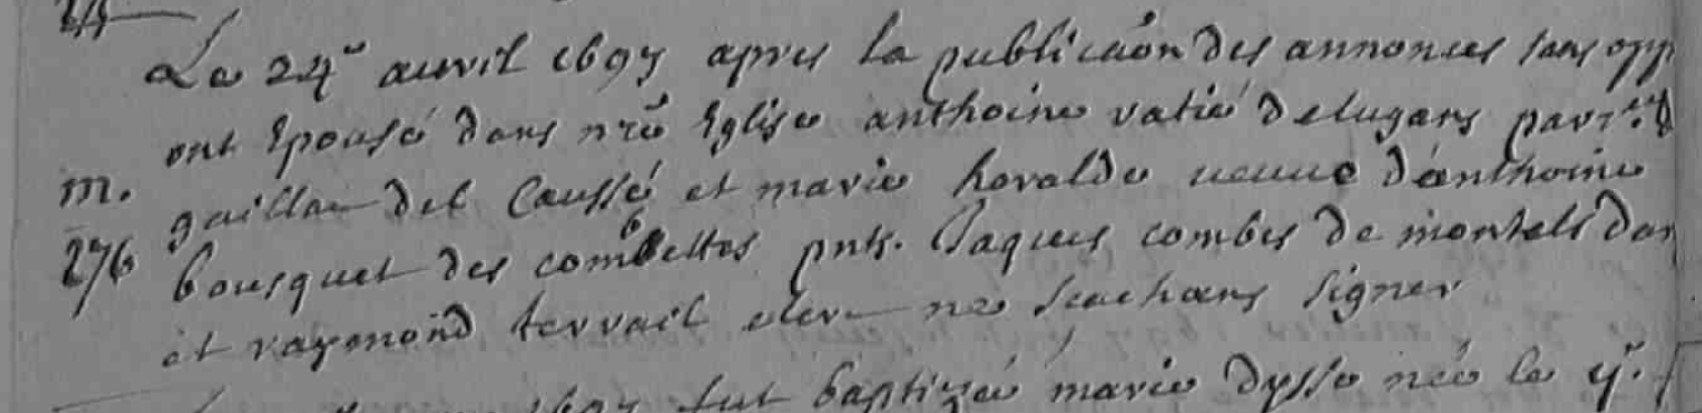 Le 24e auvril 1697 apres la publicaōn des annonces sans opp
ont Epousé dans nr̄e Eglise anthoine vatié delugans parr.
m. gaillac del Caussé et marie heralde veuve d'anthoine
276 bousquet des combettes pnts. Jaques combes de montels
et raymond terrail ne scachans signer
1697 fut baptizée marie dysse née le